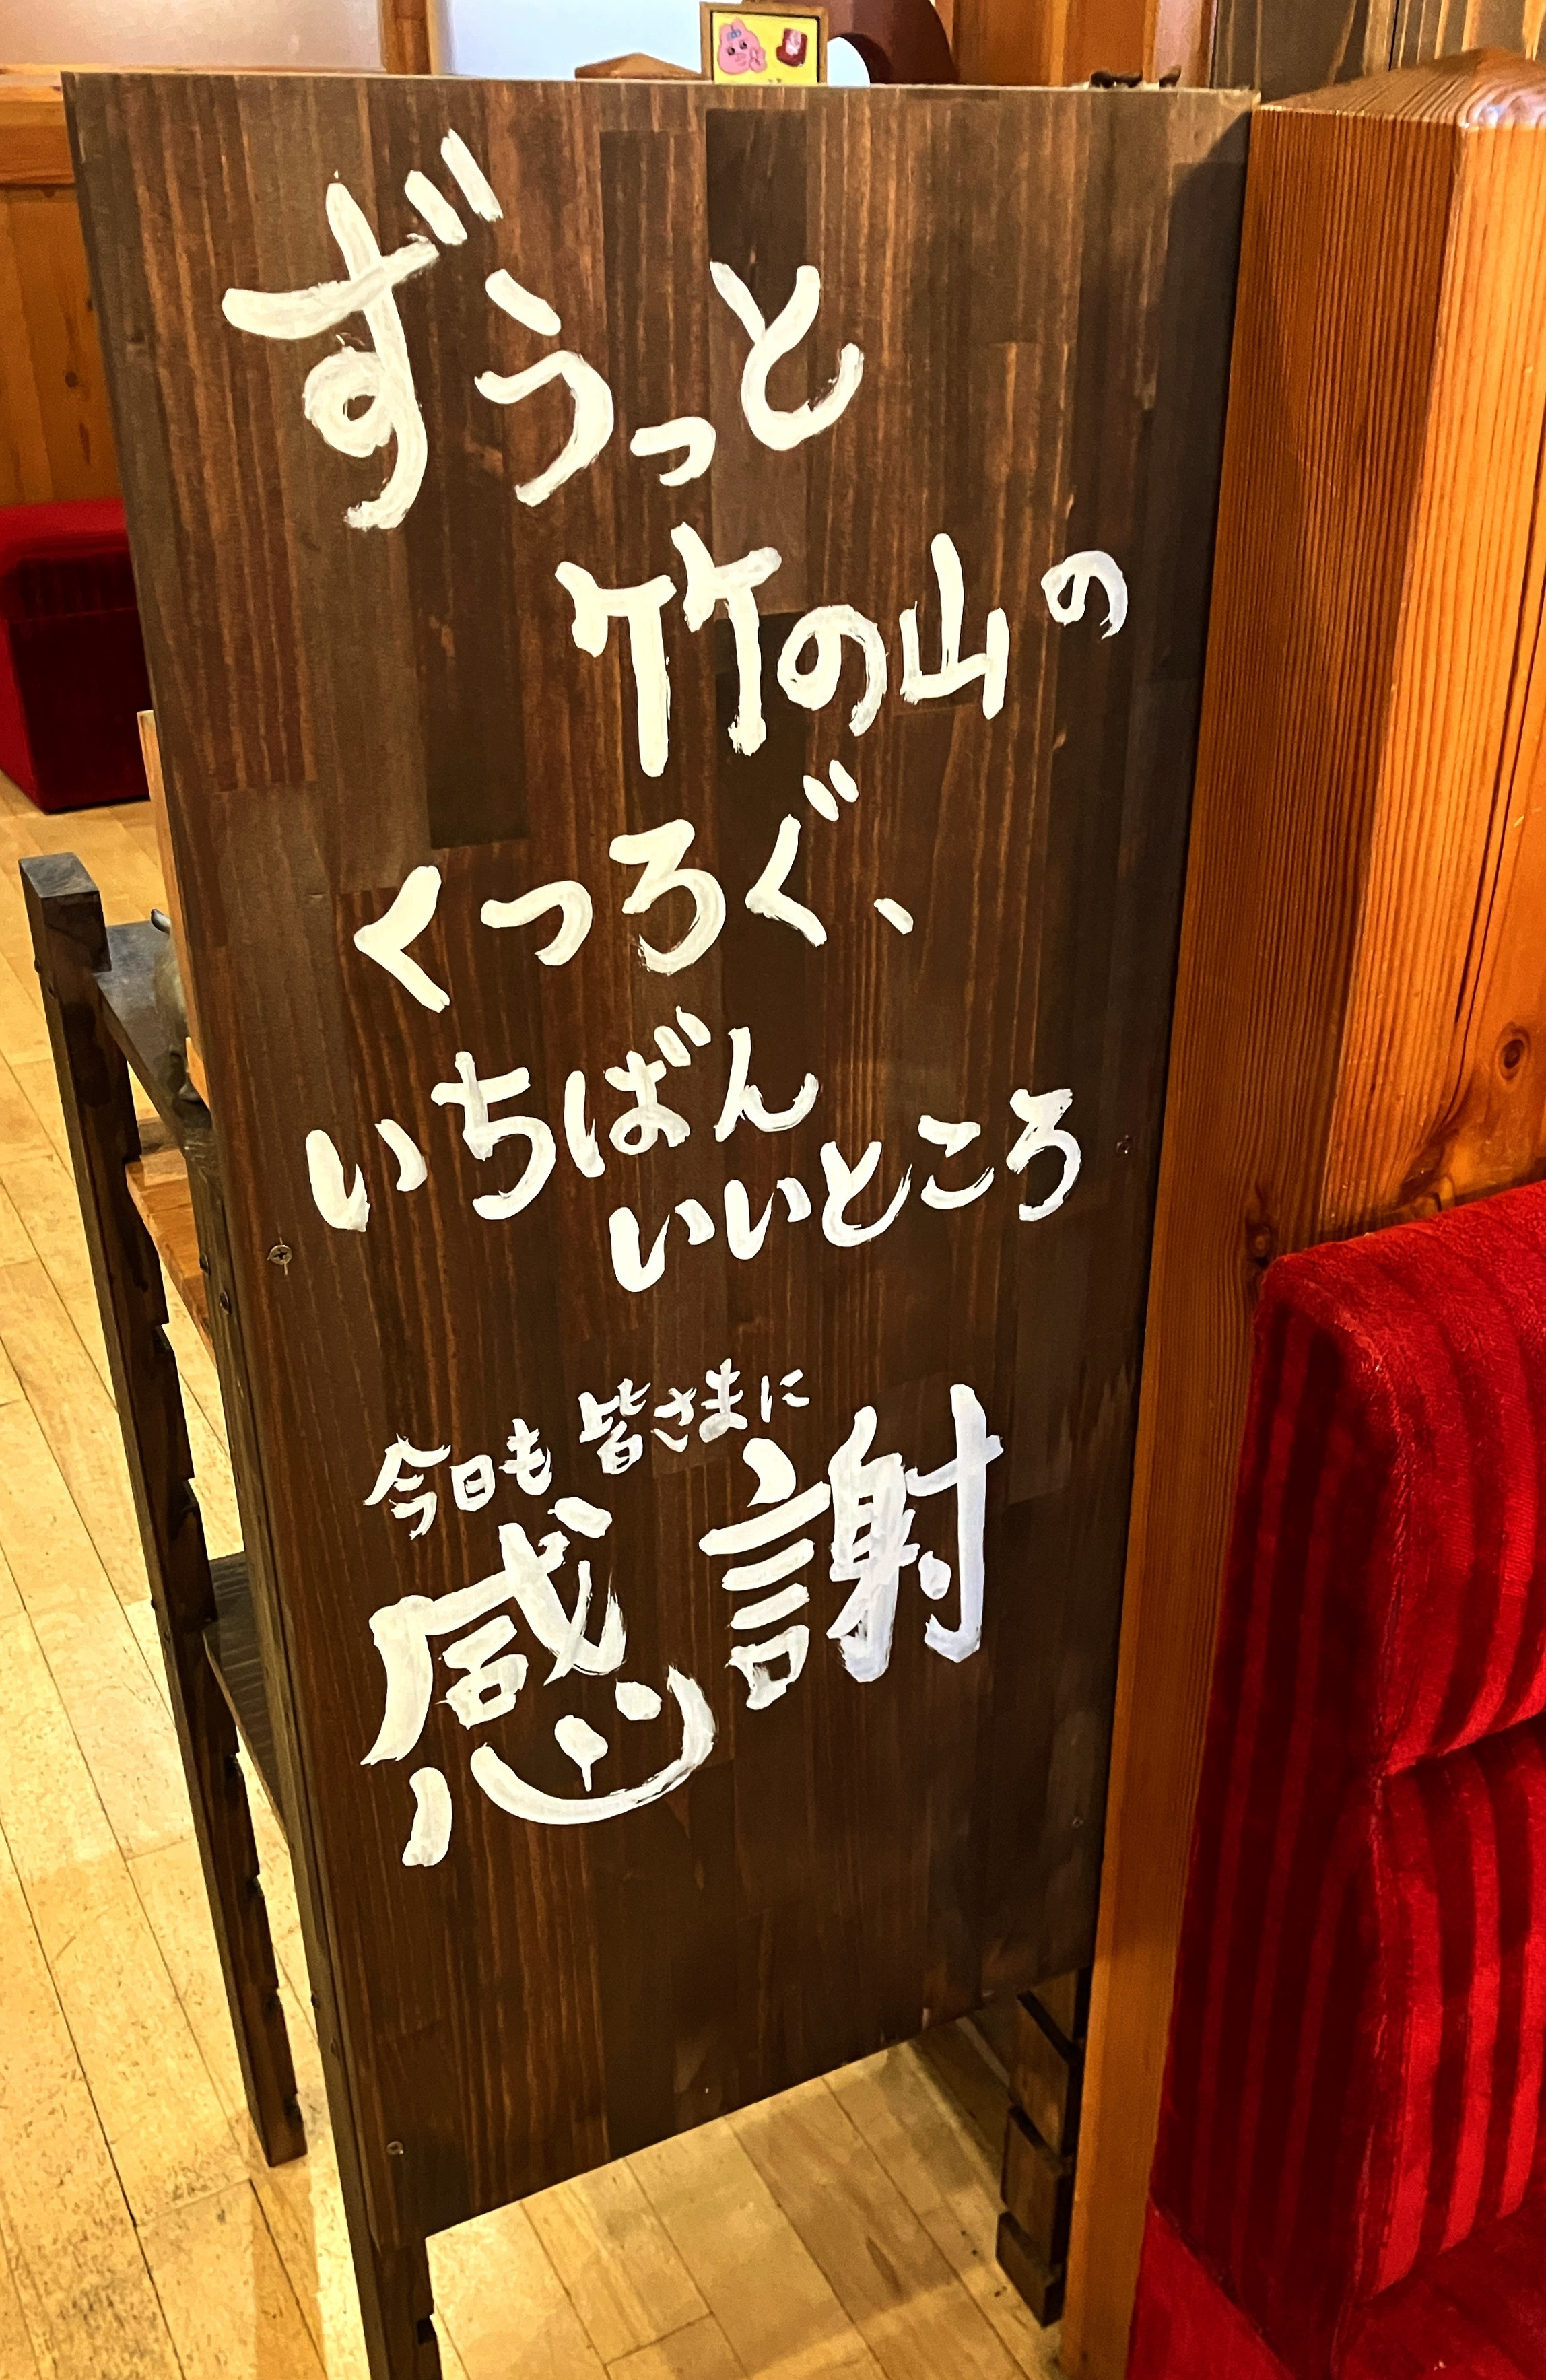 ずうっと
竹の山の
くつろぐ、
いちばん
いいところ
今日も皆さまに
感謝